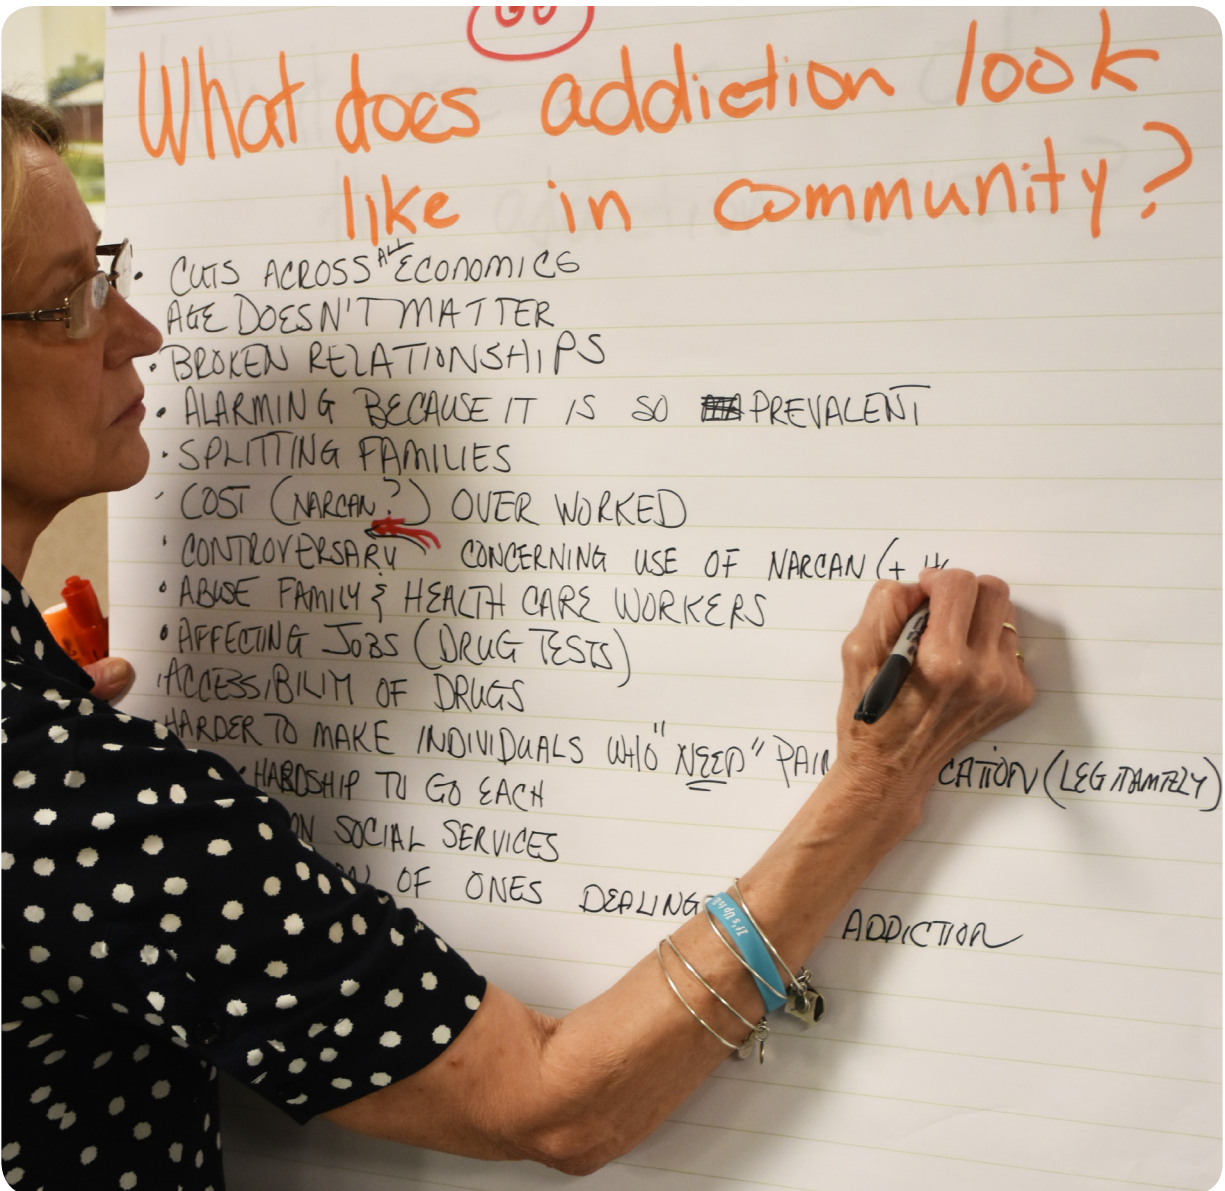 What does addiction look
like in community?
• CUTS ACROSS ALL ECONOMICS
AGE DOESN'T MATTER
• BROKEN RELATIONSHIPS
• ALARMING BECAUSE IT IS SO PREVALENT
• SPLITTING FAMILIES
• COST (NARCAN?) OVER WORKED
• CONTROVERSARY CONCERNING USE OF NARCAN (+
• ABUSE FAMILY & HEALTH CARE WORKERS
• AFFECTING JOBS (DRUG TESTS)
• ACCESSIBILITY OF DRUGS
HARDER TO MAKE INDIVIDUALS WHO "NEED" PAIN (LEGITAMTELY)
• HARDSHIP TO GO EACH
ON SOCIAL SERVICES
OF ONES DEALING ADDICTION
It's Up